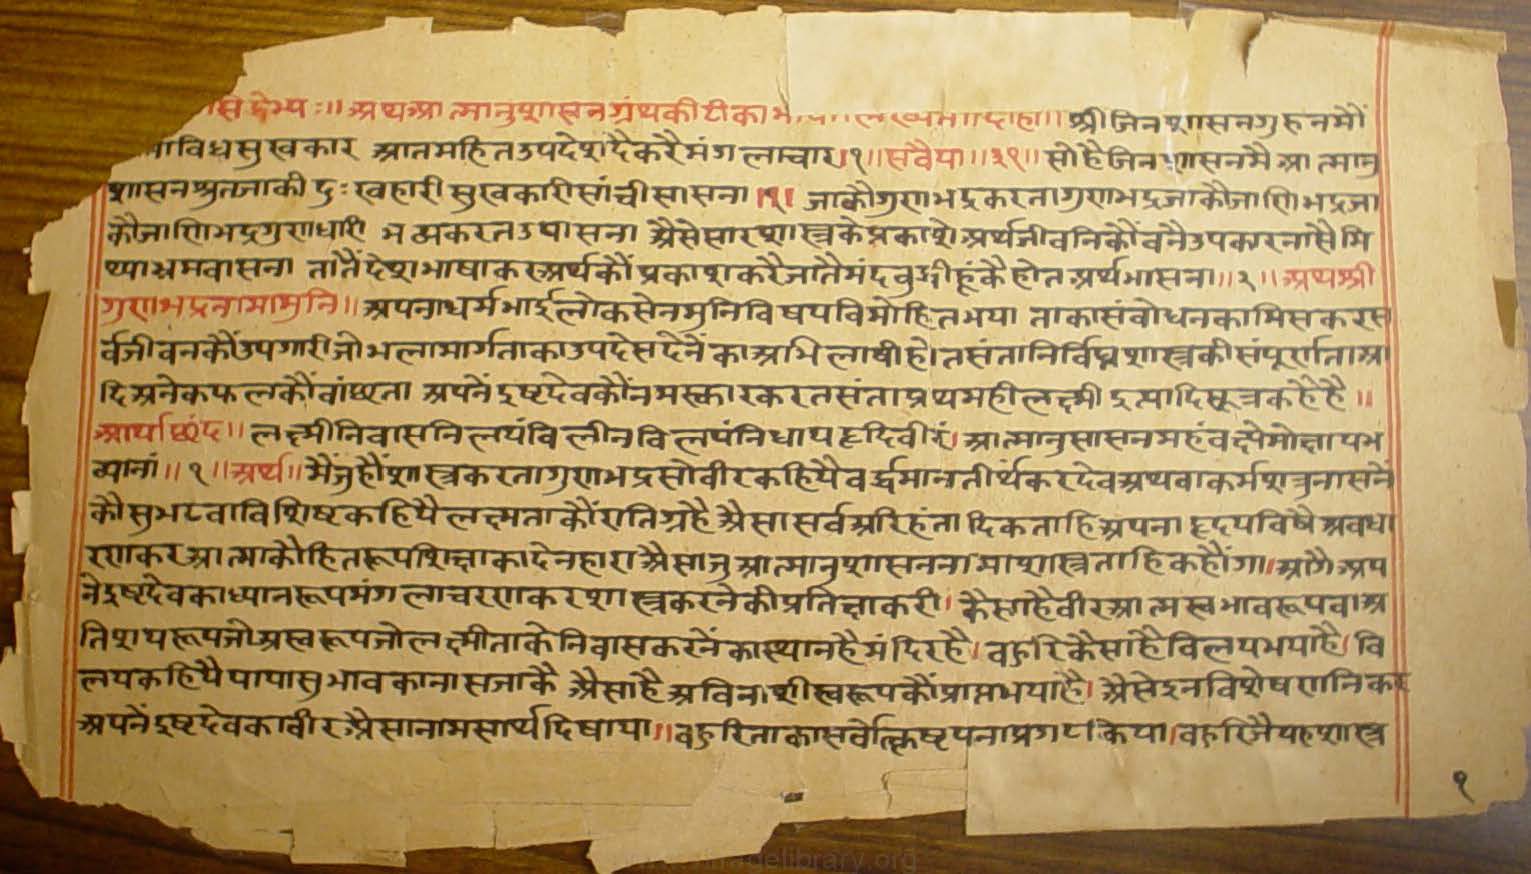 ॥ अथ आत्मानुशासन ग्रंथ की टीका ॥ श्री जिनशासन गुरु नमौं
विध सुखकार आतम हित उपदेश दै करै मंगलाचार ॥१॥ सवैया ॥३१॥ सोहै जिनशासन मै आत्मानु
शासन श्रुत जाकी दुःखहारी सुखकारी सांची सासना ॥१॥ जाकौ गुणभद्र करता गुणभद्र जाकौ जाणि भद्र जा
कौ जाणि भद्र गुणधारी भव्य करत उपासना अैसे सार शास्त्र के प्रकाशे अर्थ जीवनिकौं वनै उपकार नासै मि
थ्या भ्रम वासना तातैं देशभाषा कर अर्थकौं प्रकाश करै जातै मंदवुद्धीहूंकै होत अर्थ भासना ॥२॥ अथ श्री
गुणभद्रनामा मुनि ॥ अपना धर्मभाई लोकसेन मुनि विषय विमोहित भया ताका संवोधन का मिस कर स
र्वजीवनकौं उपगारी जो भला मार्ग ताका उपदेस देनें का अभिलाषी होत संता निर्विघ्न शास्त्र की संपूर्णता आ
दि अनेक फलकौं वांछता अपनें इष्टदेवकौं नमस्कार करत संता प्रथम ही लक्ष्मी इत्यादि सूत्र कहै है ॥
आर्या छंद ॥ लक्ष्मीनिवासनिलयं विलीनविलयं निधाय हृदि वीरं। आत्मानुसासनमहं वक्ष्ये मोक्षाय भ
व्यानां ॥१॥ अर्थ ॥ मैं जु हौं शास्त्र करता गुणभद्र सो वीर कहियै वर्द्धमान तीर्थकर देव अथवा कर्मशत्रु नासनें
कौ सुभट वा विशिष्ट कहियै लक्ष्मता कौं राति ग्रहै अैसा सर्व अरिहंतादिक ताहि अपना हृदय विषै अवधा
रण कर आत्मा कौ हितरूप शिक्षा का देनहारा अैसा जु आत्मानुशासन नामा शास्त्र ताहि कहौंगा। आगै अप
ने इष्टदेव का ध्यानरूप मंगलाचरण कर शास्त्र करने की प्रतिज्ञा करी। कैसा है वीर आत्मस्वभावरूप वा अ
तिशयरूप जो अस्वरूप जो लक्ष्मी ताके निवास करनें का स्थान है मंदिर है। वहुरि कैसा है विलय भया है। वि
लय कहियै पापासुभाव का नास जाकै अैसा है अविनाशी स्वरूप कौं प्राप्त भया है। अैसे इन विशेषणनि कर
अपनें इष्टदेव का वीर अैसा नाम सार्थ दिषाया। वहुरि ताका सर्वोत्क्रिष्टपना प्रगट किया। वहुरि जै यह शास्त्र
१